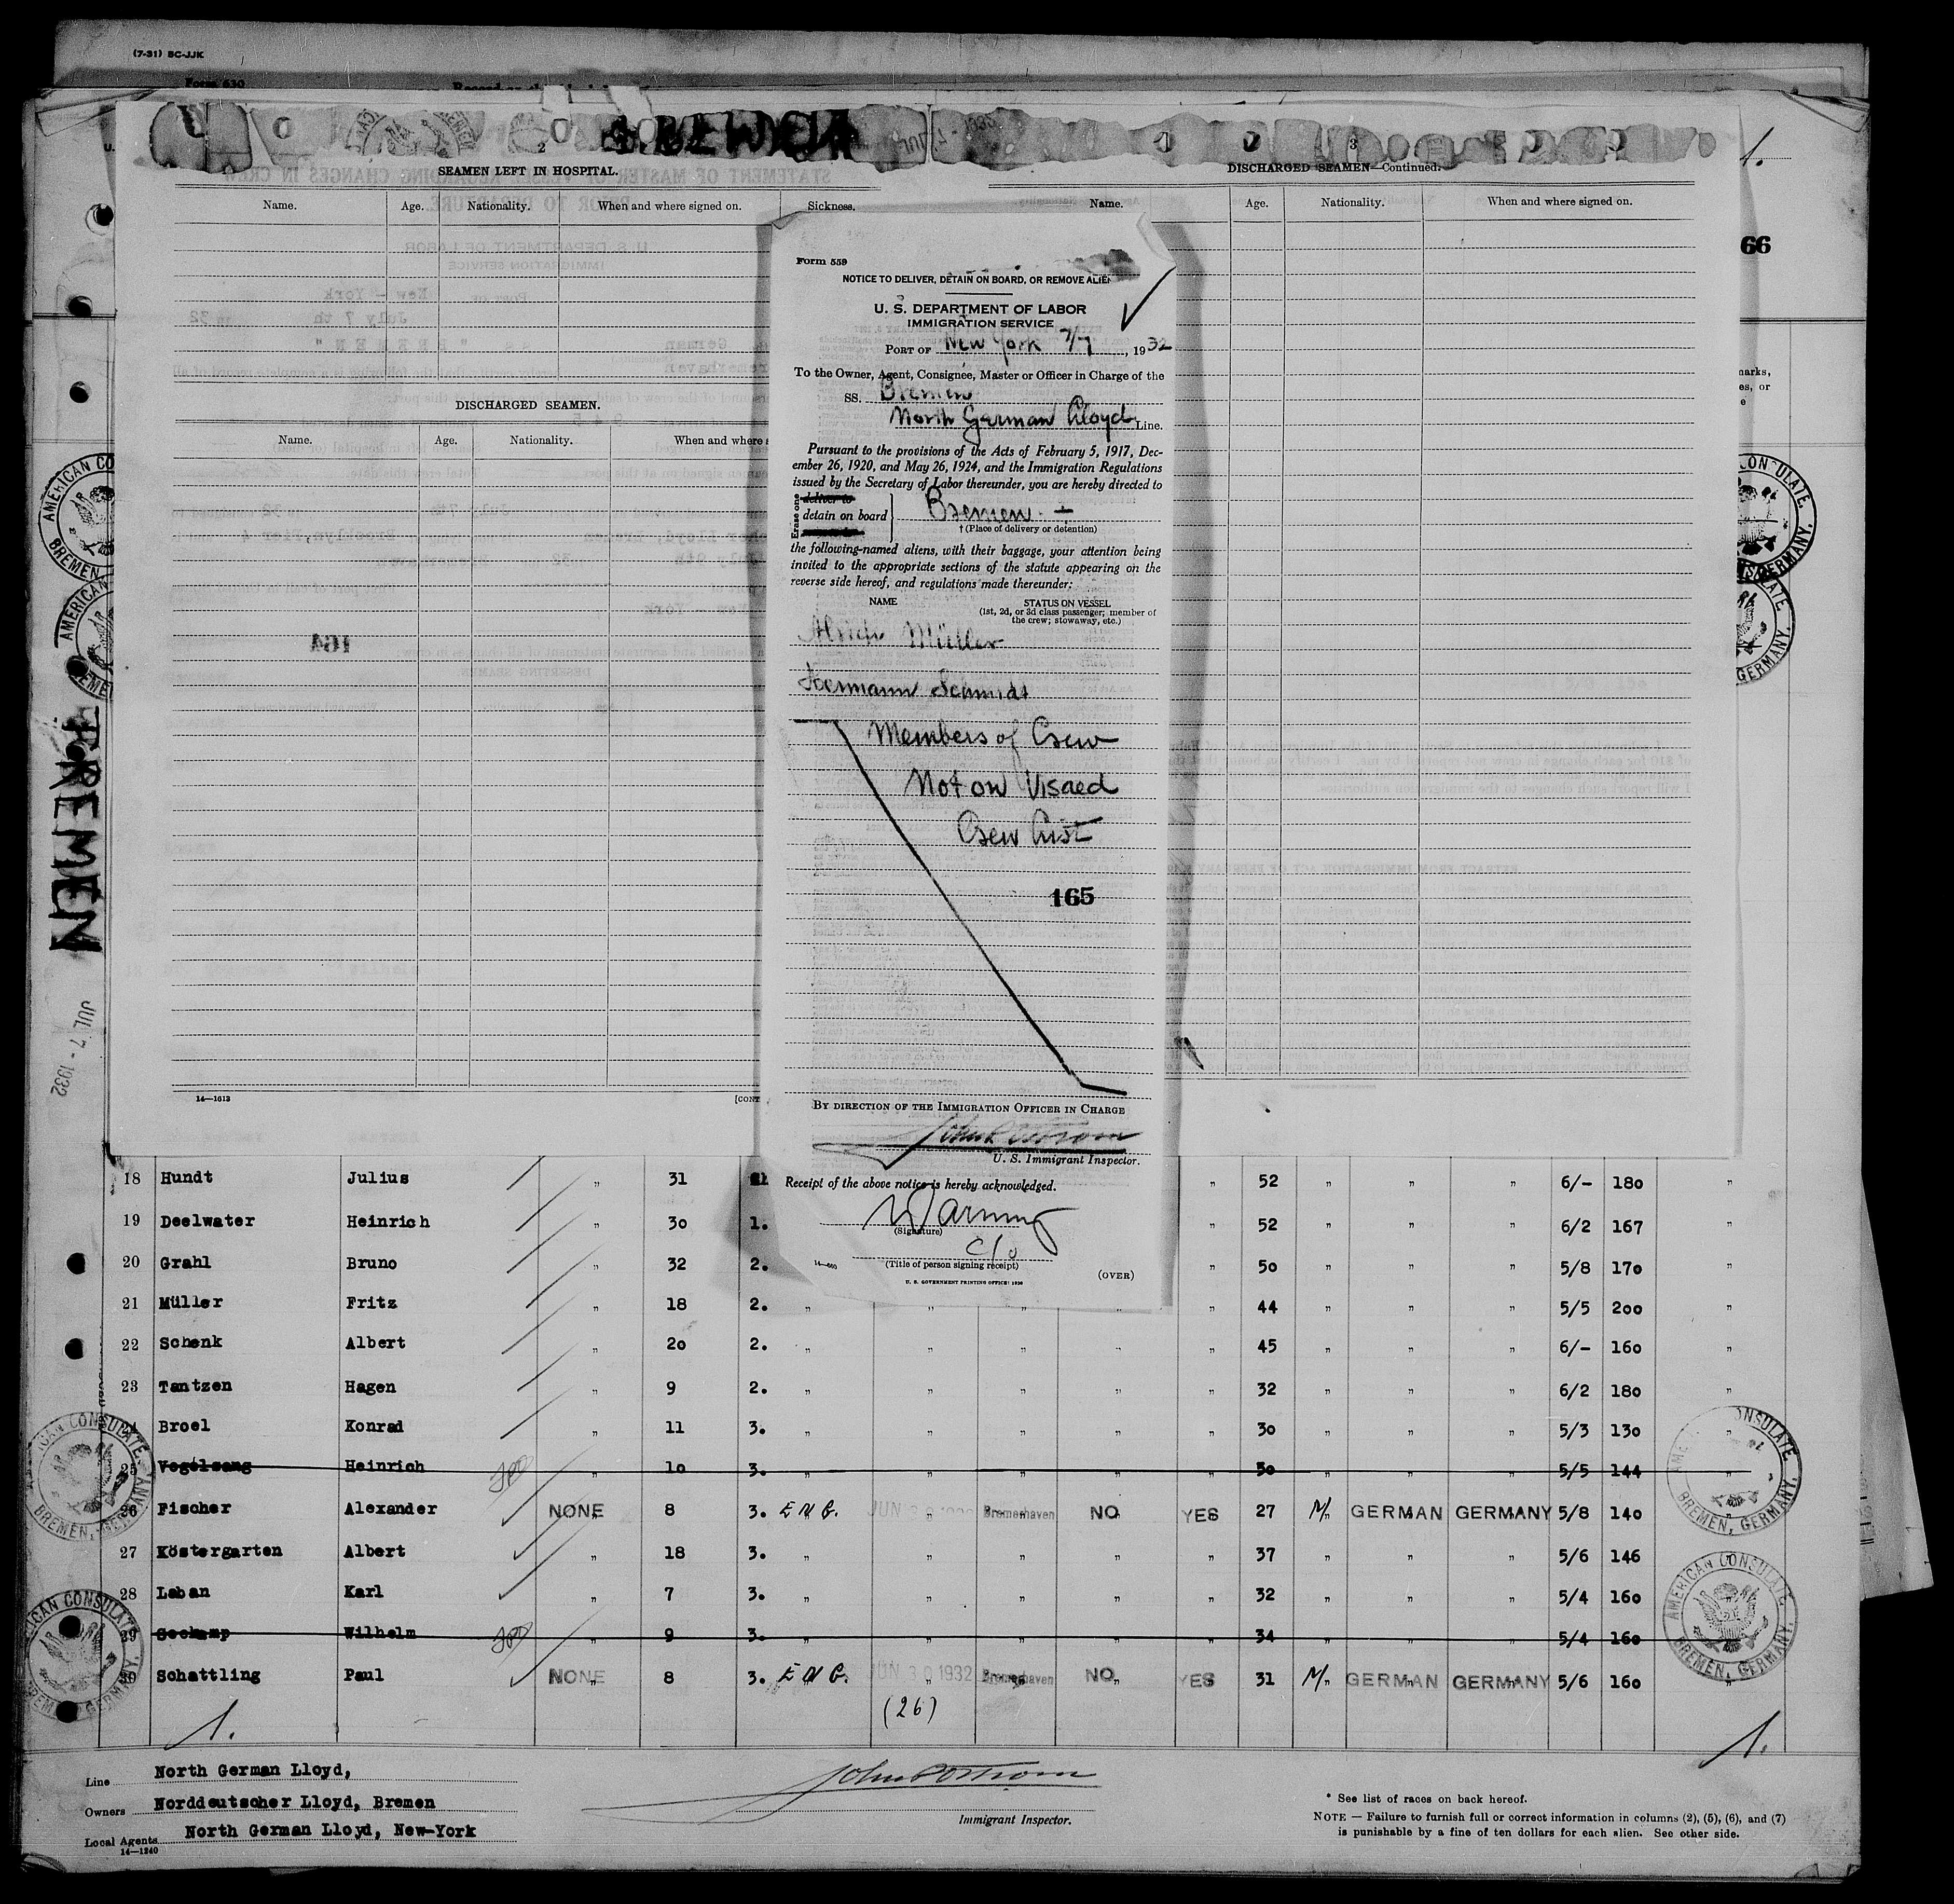 (7-31) BC-JJK
Form 630
1.
2
3
SEAMEN LEFT IN HOSPITAL.
DISCHARGED SEAMEN—Continued.
Name. Age. Nationality. When and where signed on. Sickness.
Name. Age. Nationality. When and where signed on.
66
DISCHARGED SEAMEN.
Name. Age. Nationality. When and where
164
BREMEN
JUL 7 - 1932
14—1613
Form 559
NOTICE TO DELIVER, DETAIN ON BOARD, OR REMOVE ALIEN
U. S. DEPARTMENT OF LABOR
IMMIGRATION SERVICE
PORT OF New York 7/7, 1932
To the Owner, Agent, Consignee, Master or Officer in Charge of the
SS. Bremen
North German Lloyd Line.
Pursuant to the provisions of the Acts of February 5, 1917, Dec-
ember 26, 1920, and May 26, 1924, and the Immigration Regulations
issued by the Secretary of Labor thereunder, you are hereby directed to
Erase one
deliver to
detain on board
Bremen
† (Place of delivery or detention)
the following-named aliens, with their baggage, your attention being
invited to the appropriate sections of the statute appearing on the
reverse side hereof, and regulations made thereunder:
NAME STATUS ON VESSEL
(1st, 2d, or 3d class passenger; member of
the crew; stowaway, etc.)
Müller
Hermann Schmidt
Members of Crew
Not on Visaed
Crew List
165
BY DIRECTION OF THE IMMIGRATION OFFICER IN CHARGE
U. S. Immigrant Inspector.
Receipt of the above notice is hereby acknowledged.
(Signature)
c/o
(Title of person signing receipt)
14—660
U. S. GOVERNMENT PRINTING OFFICE: 1930
(OVER)
18 Hundt Julius „ 31 „ 52 „ „ „ 6/- 180 „
19 Deelwater Heinrich „ 30 1. „ 52 „ „ „ 6/2 167 „
20 Grahl Bruno „ 32 2. „ 50 „ „ „ 5/8 170 „
21 Müller Fritz „ 18 2. „ „ „ „ „ 44 „ „ „ 5/5 200 „
22 Schenk Albert „ 20 2. „ „ „ „ „ 45 „ „ „ 6/- 160 „
23 Tantzen Hagen „ 9 2. „ „ „ „ „ 32 „ „ „ 6/2 180 „
24 Broel Konrad „ 11 3. „ „ „ „ „ 30 „ „ „ 5/3 130 „
25 Vogelsang Heinrich „ 10 3. „ „ „ „ „ 30 „ „ „ 5/5 144 „
26 Fischer Alexander NONE 8 3. JUN 30 1932 Bremerhaven NO YES 27 M GERMAN GERMANY 5/8 140 „
27 Köstergarten Albert „ 18 3. „ „ „ „ „ 37 „ „ „ 5/6 146 „
28 Laban Karl „ 7 3. „ „ „ „ „ 32 „ „ „ 5/4 160 „
29 Seekamp Wilhelm „ 9 3. „ „ „ „ „ 34 „ „ „ 5/4 160 „
30 Schattling Paul NONE 8 3. JUN 30 1932 Bremerhaven NO YES 31 M GERMAN GERMANY 5/6 160 „
(26)
1.
1.
AMERICAN CONSULATE
BREMEN, GERMANY.
Line North German Lloyd,
Owners Norddeutscher Lloyd, Bremen
Local Agents North German Lloyd, New-York
14—1240
Immigrant Inspector.
* See list of races on back hereof.
NOTE — Failure to furnish full or correct information in columns (2), (5), (6), and (7)
is punishable by a fine of ten dollars for each alien. See other side.